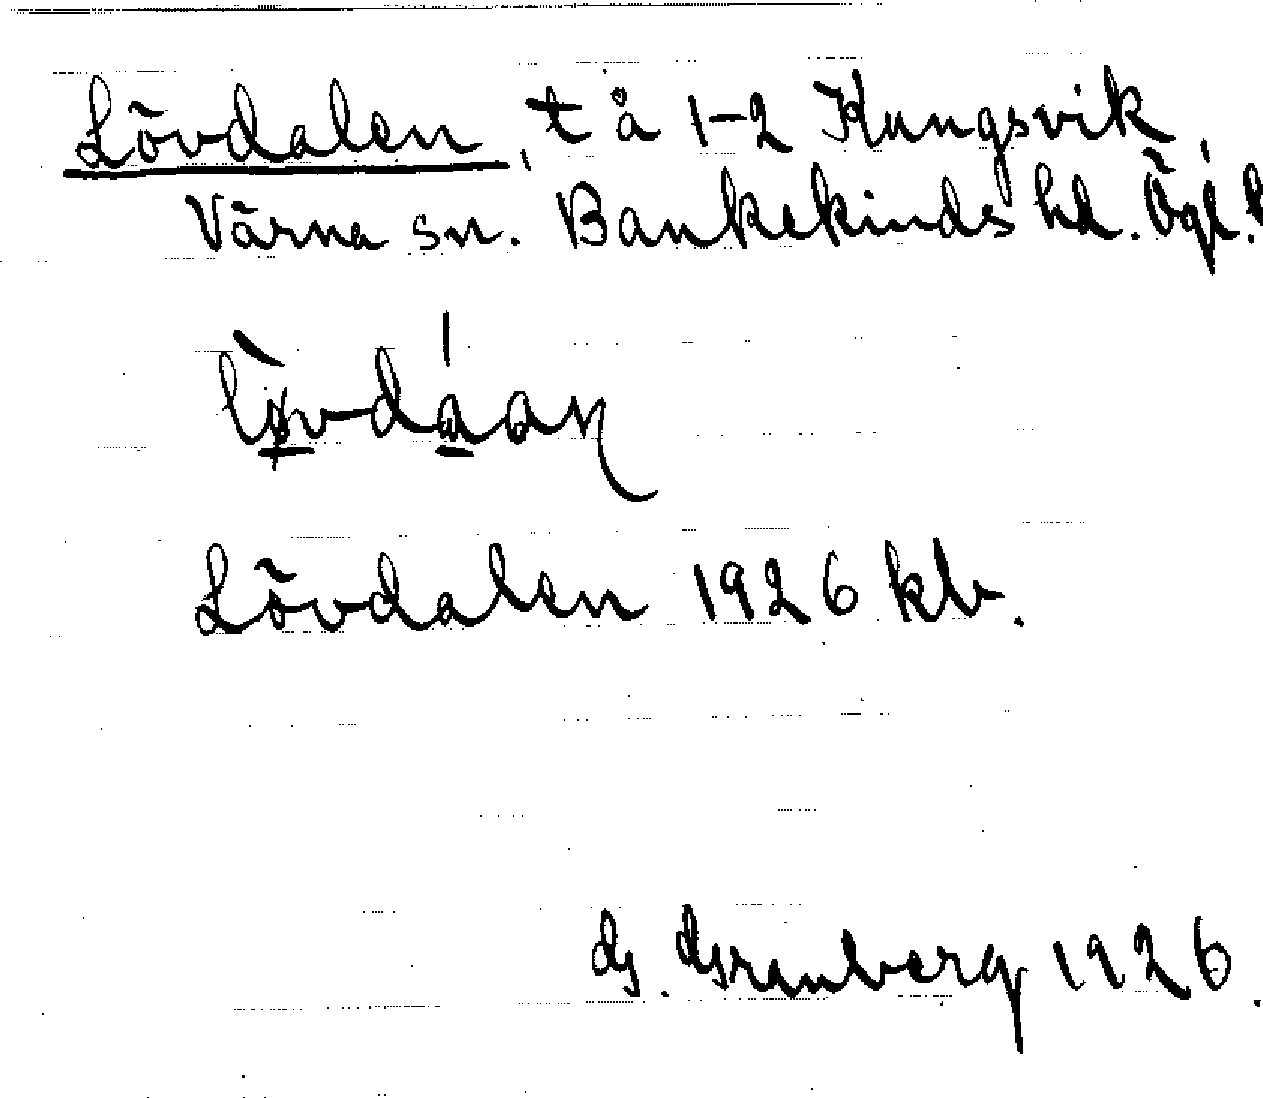 Lövdalen, t å 1-2 Kungsvik
Värna sn. Bankekinds hd. Ögl.
Lövdalen 1926 kb.
G. Granberg 1926.